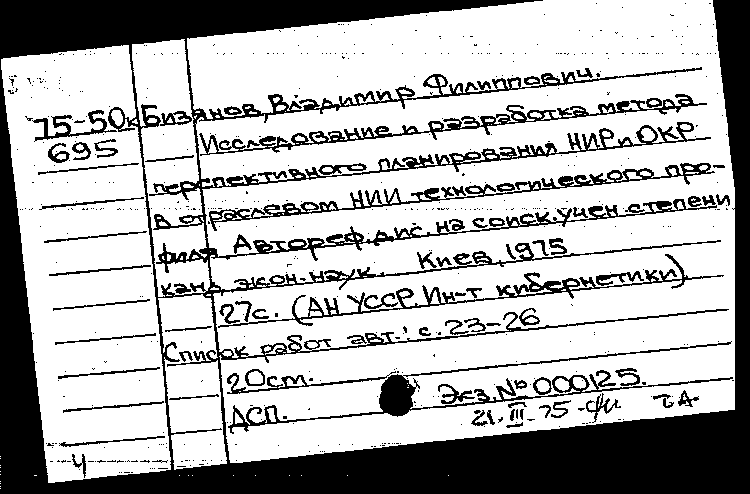 75-50к Бизянов, Владимир Филиппович.
695 Исследование и разработка метода
перспективного планирования НИР и ОКР
в отраслевом НИИ технологического про-
филя. Автореф. дис. на соиск. учен. степени
канд. экон. наук. Киев, 1975
27с. (АН УССР. Ин-т кибернетики).
Список работ авт.: с. 23-26
20см.
ДСП. Экз. № 000125.
21. III. 75
4